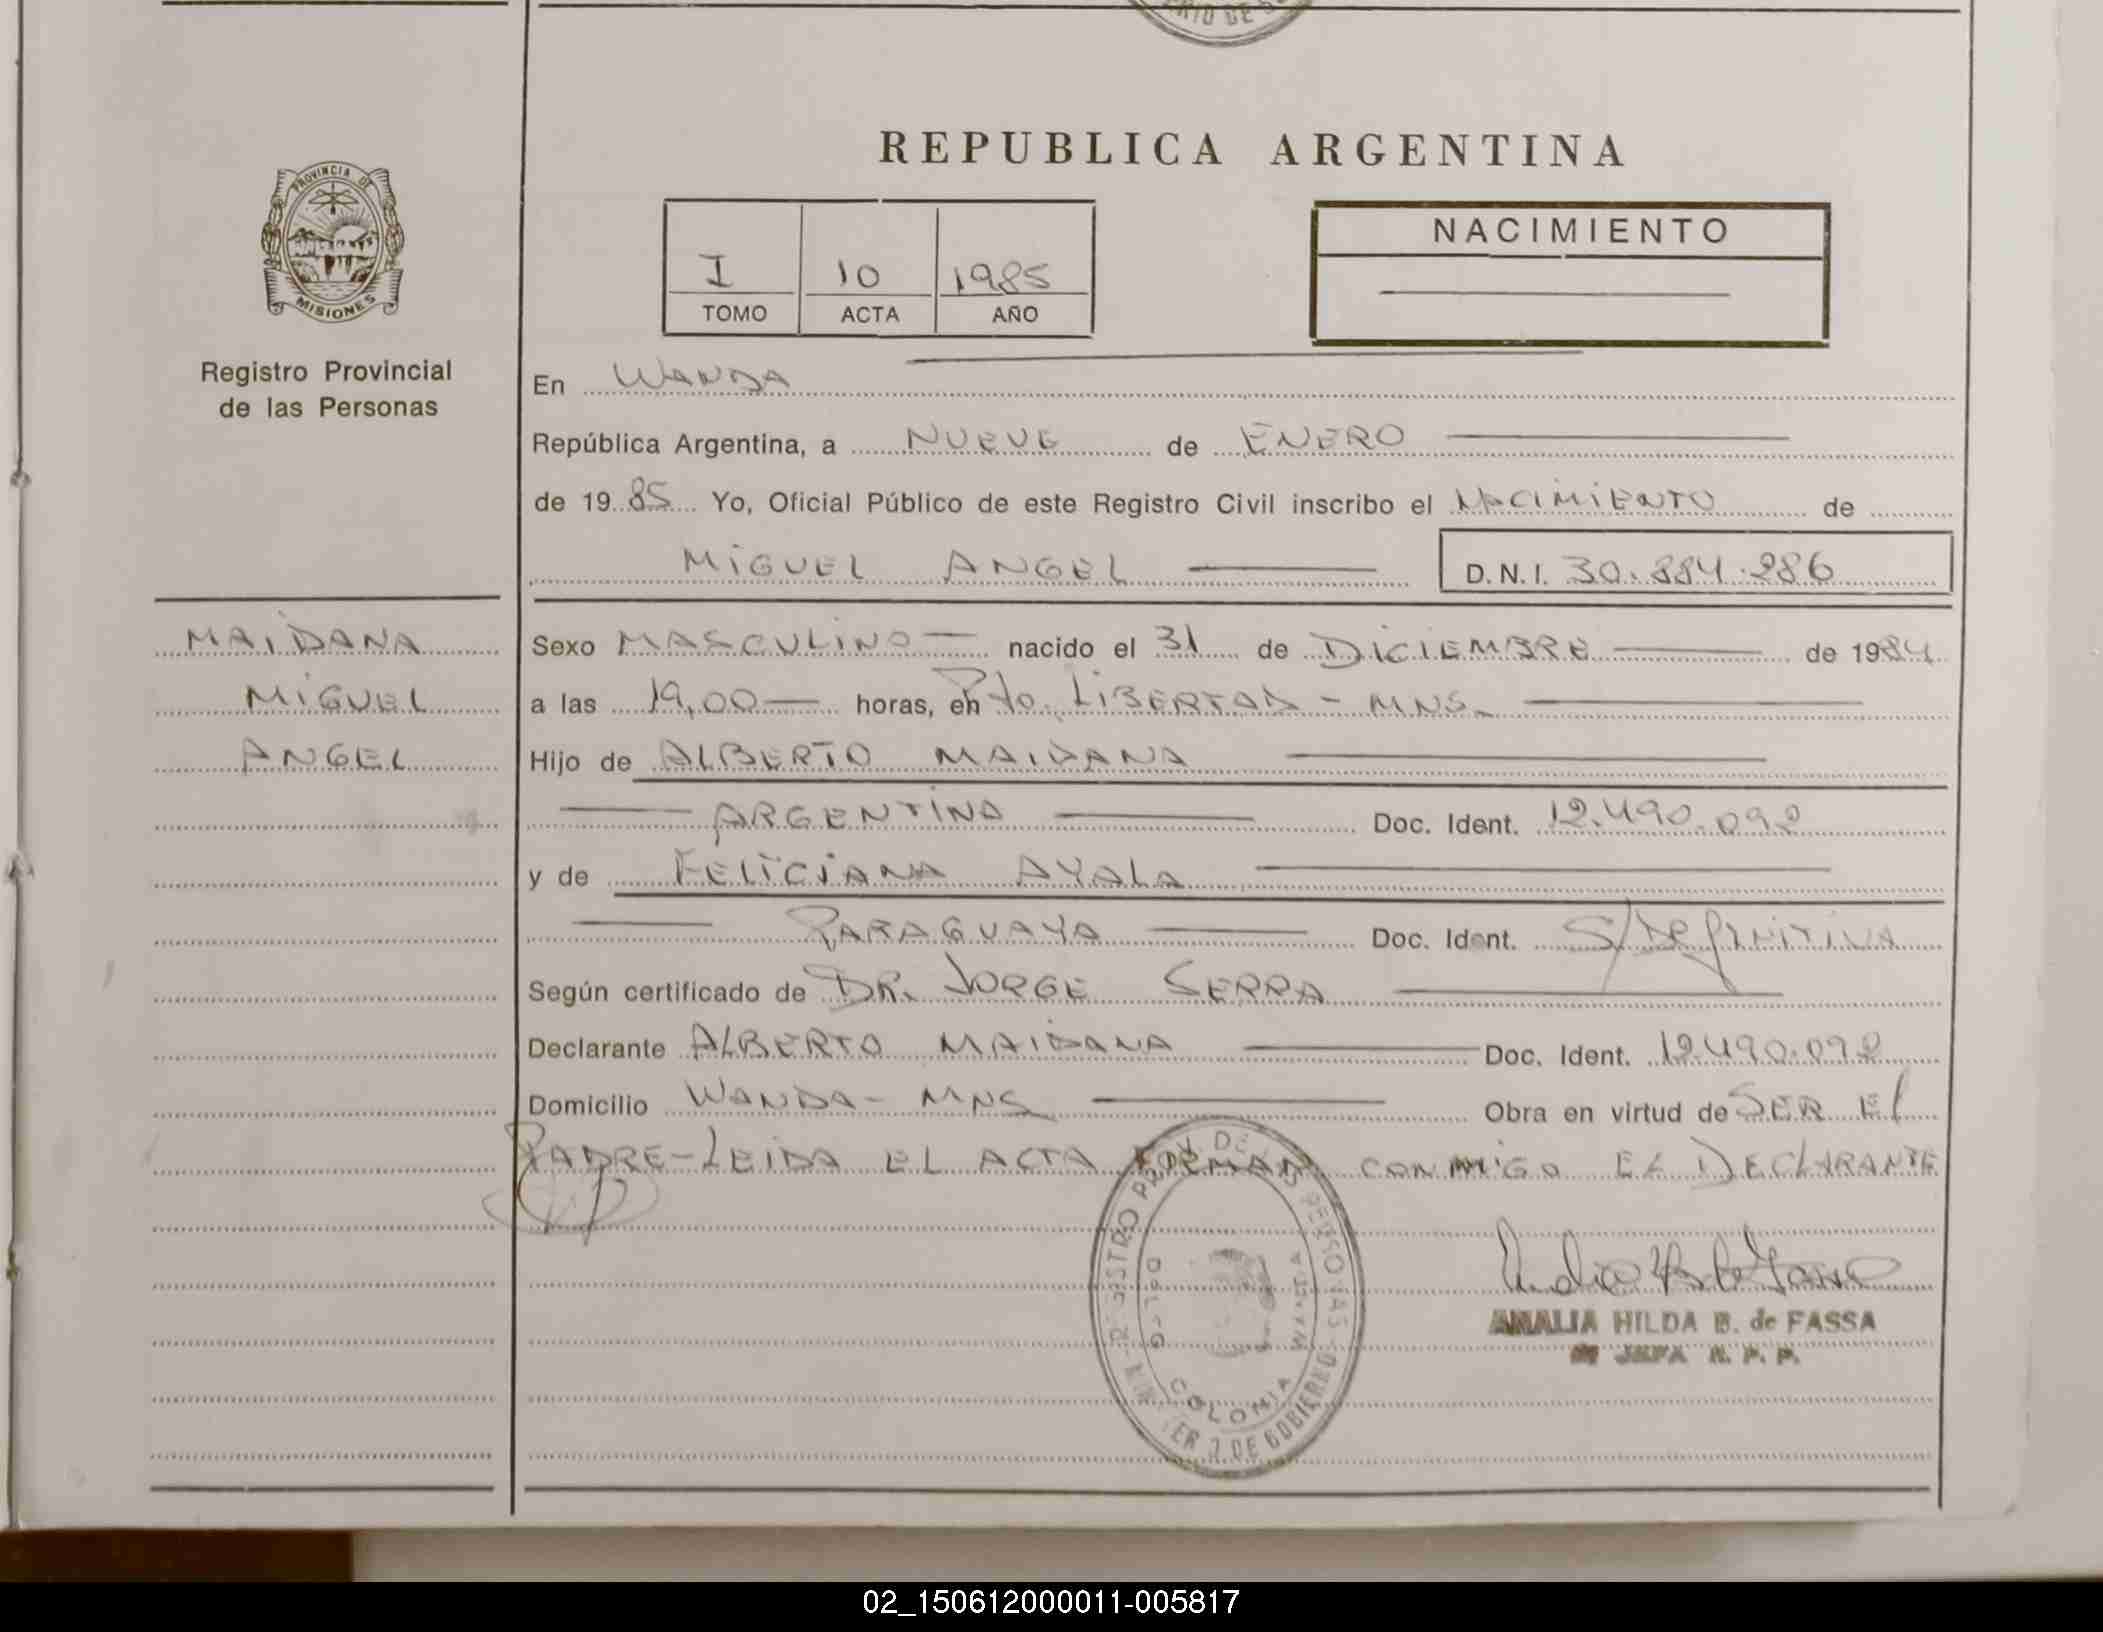 ERIO DE
PROVINCIA DE
MISIONES
Registro Provincial
de las Personas
REPUBLICA ARGENTINA
I 10 1985
TOMO ACTA AÑO
NACIMIENTO
En WANDA
República Argentina, a NUEVE de ENERO
de 19 85 Yo, Oficial Público de este Registro Civil inscribo el NACIMIENTO de
MIGUEL ANGEL D.N.I. 30.884.286
MAIDANA
MIGUEL
ANGEL
Sexo MASCULINO nacido el 31 de DICIEMBRE de 1984
a las 19,00 horas, en Pto. LIBERTAD - MNS.
Hijo de ALBERTO MAIDANA
ARGENTINA Doc. Ident. 12.490.092
y de FELICIANA AYALA
PARAGUAYA Doc. Ident. S/DEFINITIVA
Según certificado de DR. JORGE SERRA
Declarante ALBERTO MAIDANA Doc. Ident. 12.490.092
Domicilio WANDA - MNS Obra en virtud de SER El
PADRE - LEIDA EL ACTA FIRMAN CONMIGO EL DECLARANTE
COLONIA WANDA
AMALIA HILDA B. de FASSA
JEFA R. P. P.
02_150612000011-005817